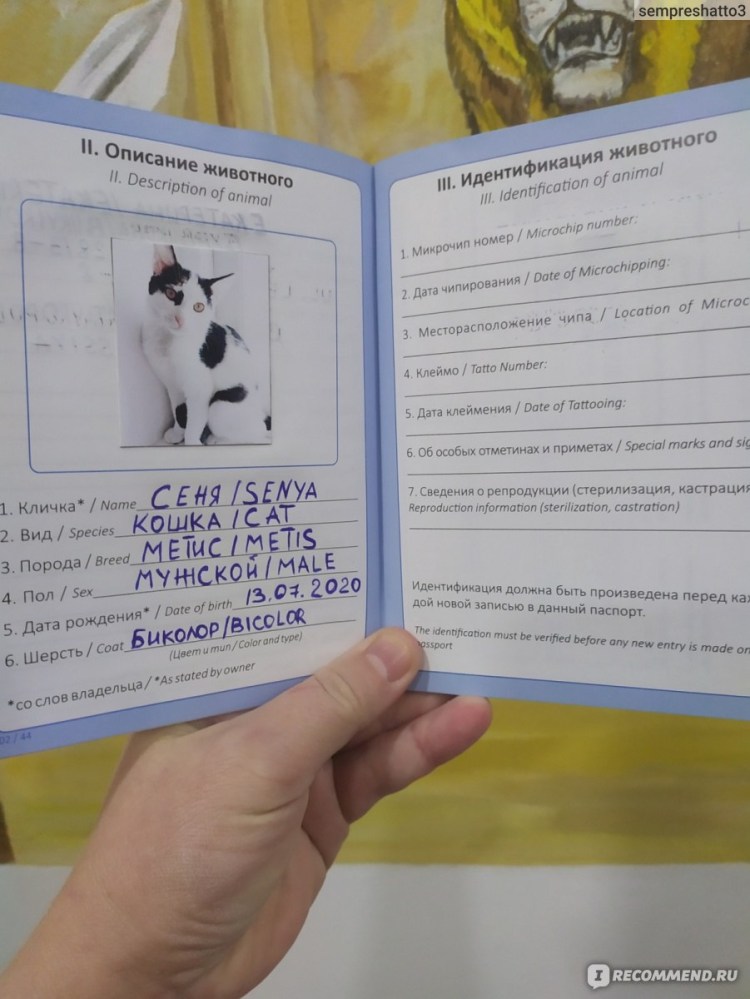 sempreshatto3
II. Описание животного
II. Description of animal
1. Кличка* / Name СЕНЯ / SENYA
2. Вид / Species КОШКА / CAT
3. Порода / Breed МЕТИС / METIS
4. Пол / Sex МУЖСКОЙ / MALE
5. Дата рождения* / Date of birth 13.07.2020
6. Шерсть / Coat БИКОЛОР / BICOLOR
(Цвет и тип / Color and type)
*со слов владельца / *As stated by owner
02 / 44
III. Идентификация животного
III. Identification of animal
1. Микрочип номер / Microchip number:
2. Дата чипирования / Date of Microchipping:
3. Месторасположение чипа / Location of Microc
4. Клеймо / Tatto Number:
5. Дата клеймения / Date of Tattooing:
6. Об особых отметинах и приметах / Special marks and sig
7. Сведения о репродукции (стерилизация, кастрация
Reproduction information (sterilization, castration)
Идентификация должна быть произведена перед каж
дой новой записью в данный паспорт.
The identification must be verified before any new entry is made on
passport
IRECOMMEND.RU